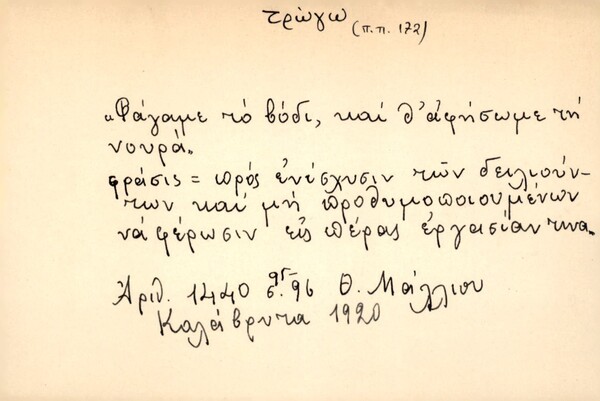 τρώγω
(π.π. 172)
«Φάγαμε τό βόδι, καί θ'ἀφήσωμε τή
νουρά.»
φράσις = πρός ἐνίσχυσιν τῶν δειλιούν-
των καί μή προθυμοποιουμένων
νά φέρωσιν εἰς πέρας ἐργασίαν τινα.
Ἀριθ. 1440 σ. 95-96 Θ. Μάλλιου
Καλάβρυτα 1920